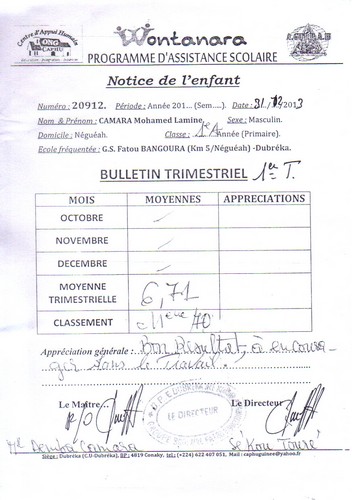 Centre d'Appui Humain
ONG
CAPHU
Wontanara
PROGRAMME D'ASSISTANCE SCOLAIRE
Notice de l'enfant
Numéro : 20912. Période : Année 201... (Sem.....). Date : 31/12/2013
Nom & Prénom : CAMARA Mohamed Lamine. Sexe : Masculin.
Domicile : Néguéah. Classe : 1e A Année (Primaire).
Ecole fréquentée : G.S. Fatou BANGOURA (Km 5/Néguéah) -Dubréka.
BULLETIN TRIMESTRIEL 1er T.
MOIS MOYENNES APPRECIATIONS
OCTOBRE
NOVEMBRE
DECEMBRE
MOYENNE TRIMESTRIELLE 6,71
CLASSEMENT 11ème/70
Appréciation générale : Bon Résultat, à encoura-
ger dans le travail.
Le Maître Le Directeur
P/O
LE DIRECTEUR
Mr Demba Camara Sékou Touré
Siège : Dubréka (C.U-Dubréka), BP : 4819 Conakry, tel : (+224) 622 407 051, Mail : caphuguinee@yahoo.fr